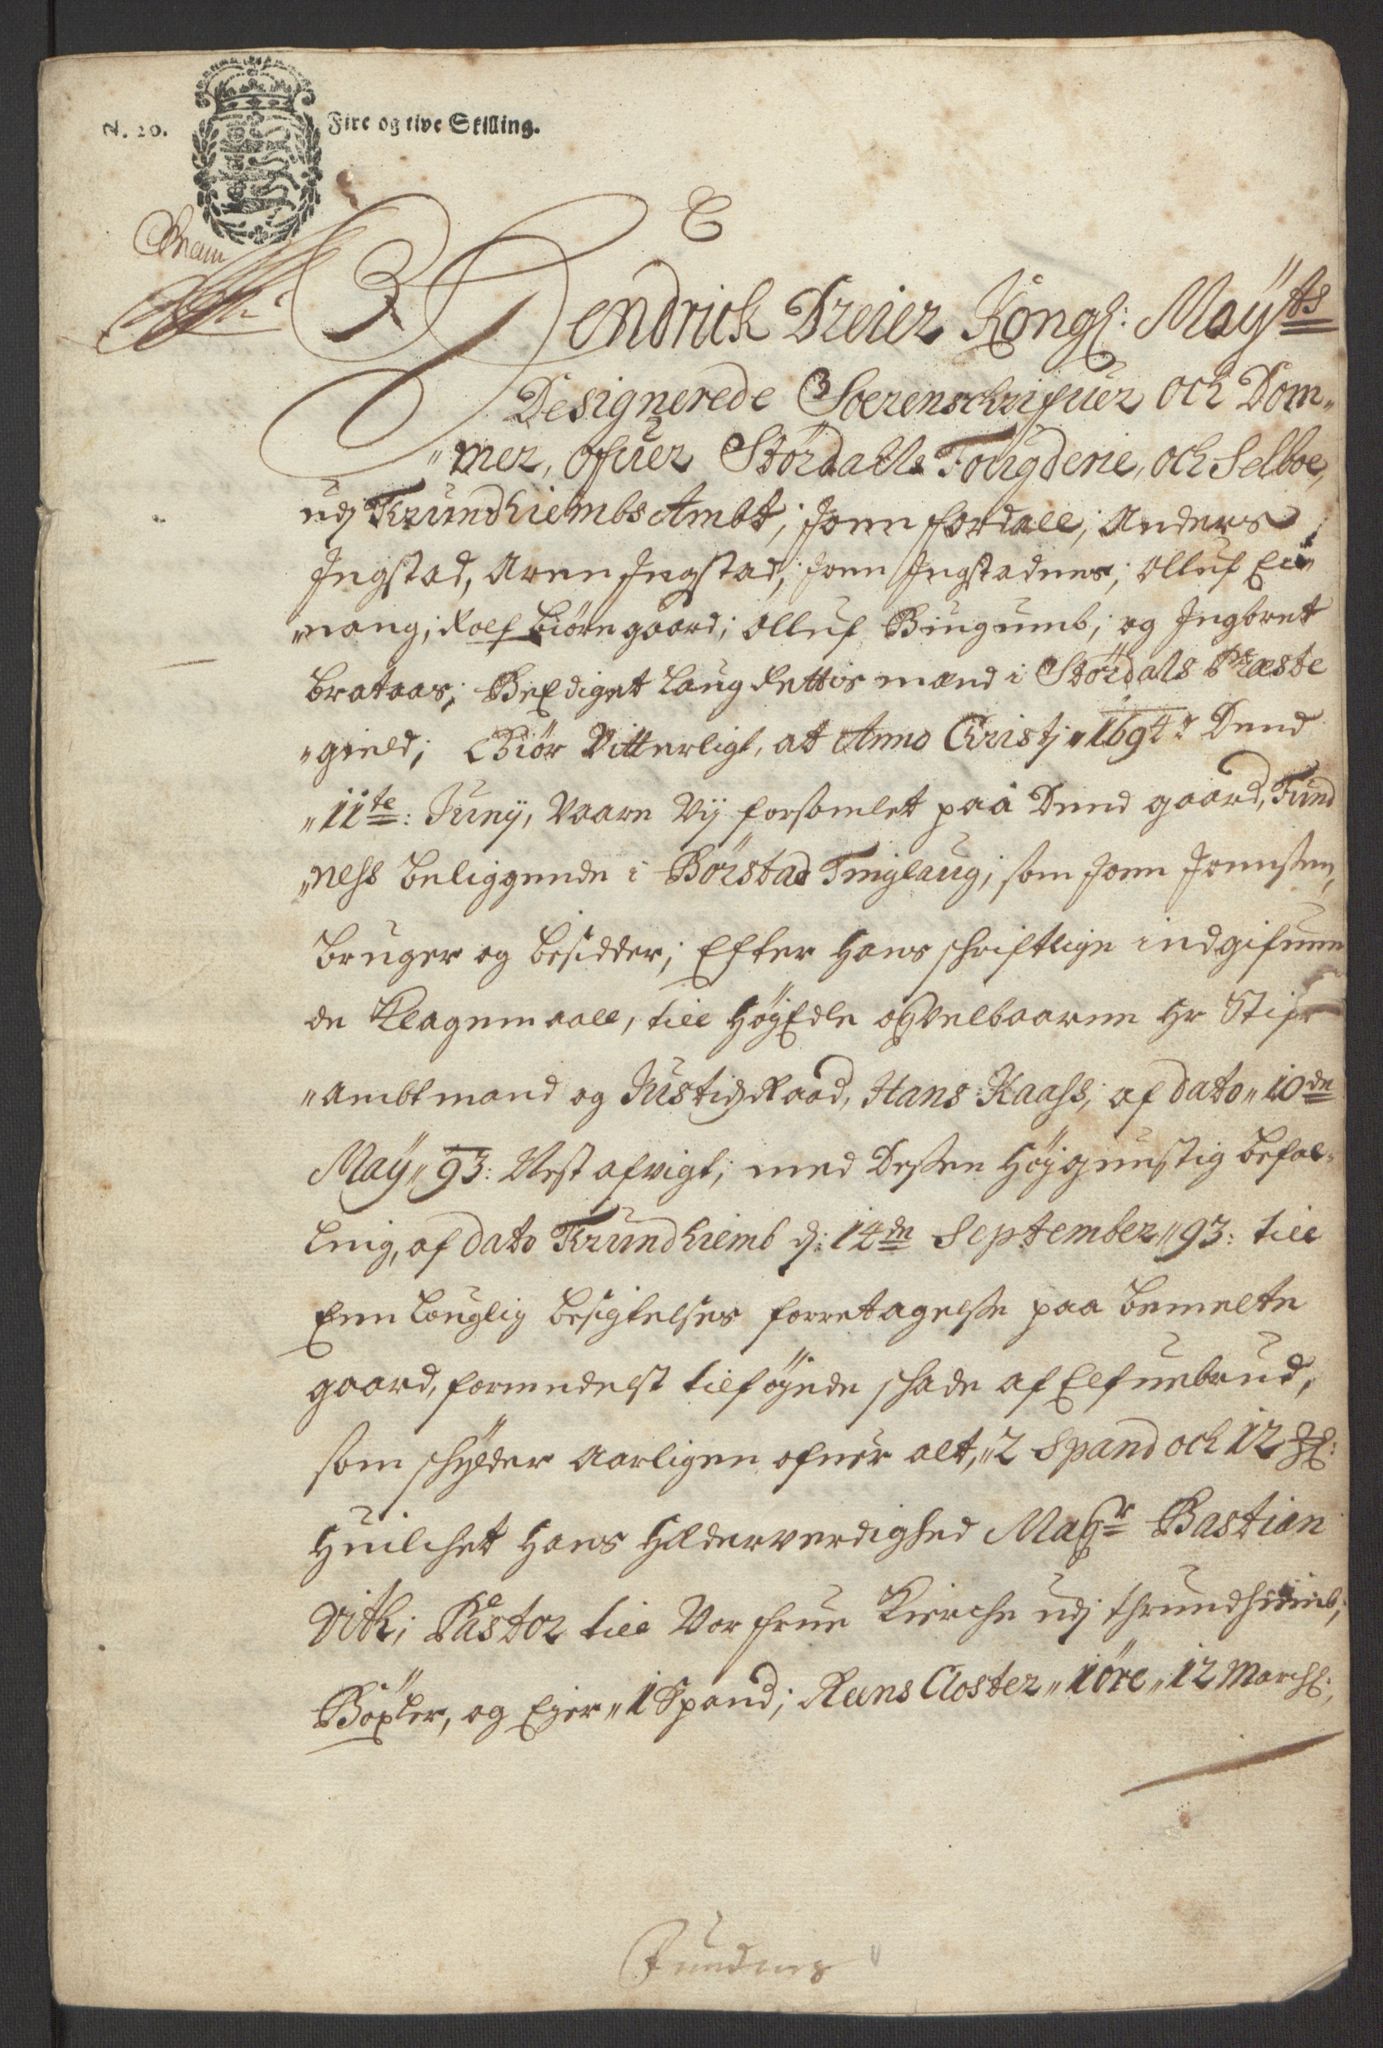 N. 20. Fire og tive Skilling.
E
Hendrick Dreier Kongl: Mayts
Designerede Soerenschrifuer och Dom„
„mer, ofuer Størdahls Fougderie, och Selboe,
udj Trundhiembs Ambt; Joen fordall; Anders
Ingstad, Aren Ingstad; Joen Ingstadnes; Olluf Ei„
„nang; Rolf biørngaard; Olluf Bingumb; og Ingbret
brataas; Bexdiget laug Rettis mænd i Størdals Præste
„gield; Giør Vitterligt, at Anno Christj „1694„ Dend
„11te: Junij, Vaare Vij forsamlet paa Dend gaard, Fund
„ness beliggende i Børstad Tinglaug; som Joen Joenssen,
bruger og besidder; Efter hans schriftlige indgifuen
de Klagemaall, till HøyEdle og Velbaarne Hr Stifts
„ambtmand og Justidz Raad, Hans Kaass; af dato „10de
May „93: Nest afvigt; med Dessen høygunstig befal„
ling, af dato Trundhiemb d: 14de September „93: till
Een lauglig besigtelses forretagelse paa bemelte
gaard, formedelst tilføyede schade af Elfuebrud,
som schylder aarligen ofuer alt, „2 Spand och 12 Ml:
huilchet hans Hæderverdighed Magr Bastian
Vith; Pastor till Vor frue Kierche udj thrundhiemb;
Bøxler, og Eger „1 Spand; Reens Closter „1 øre „12 Marchl:,
Fundnes